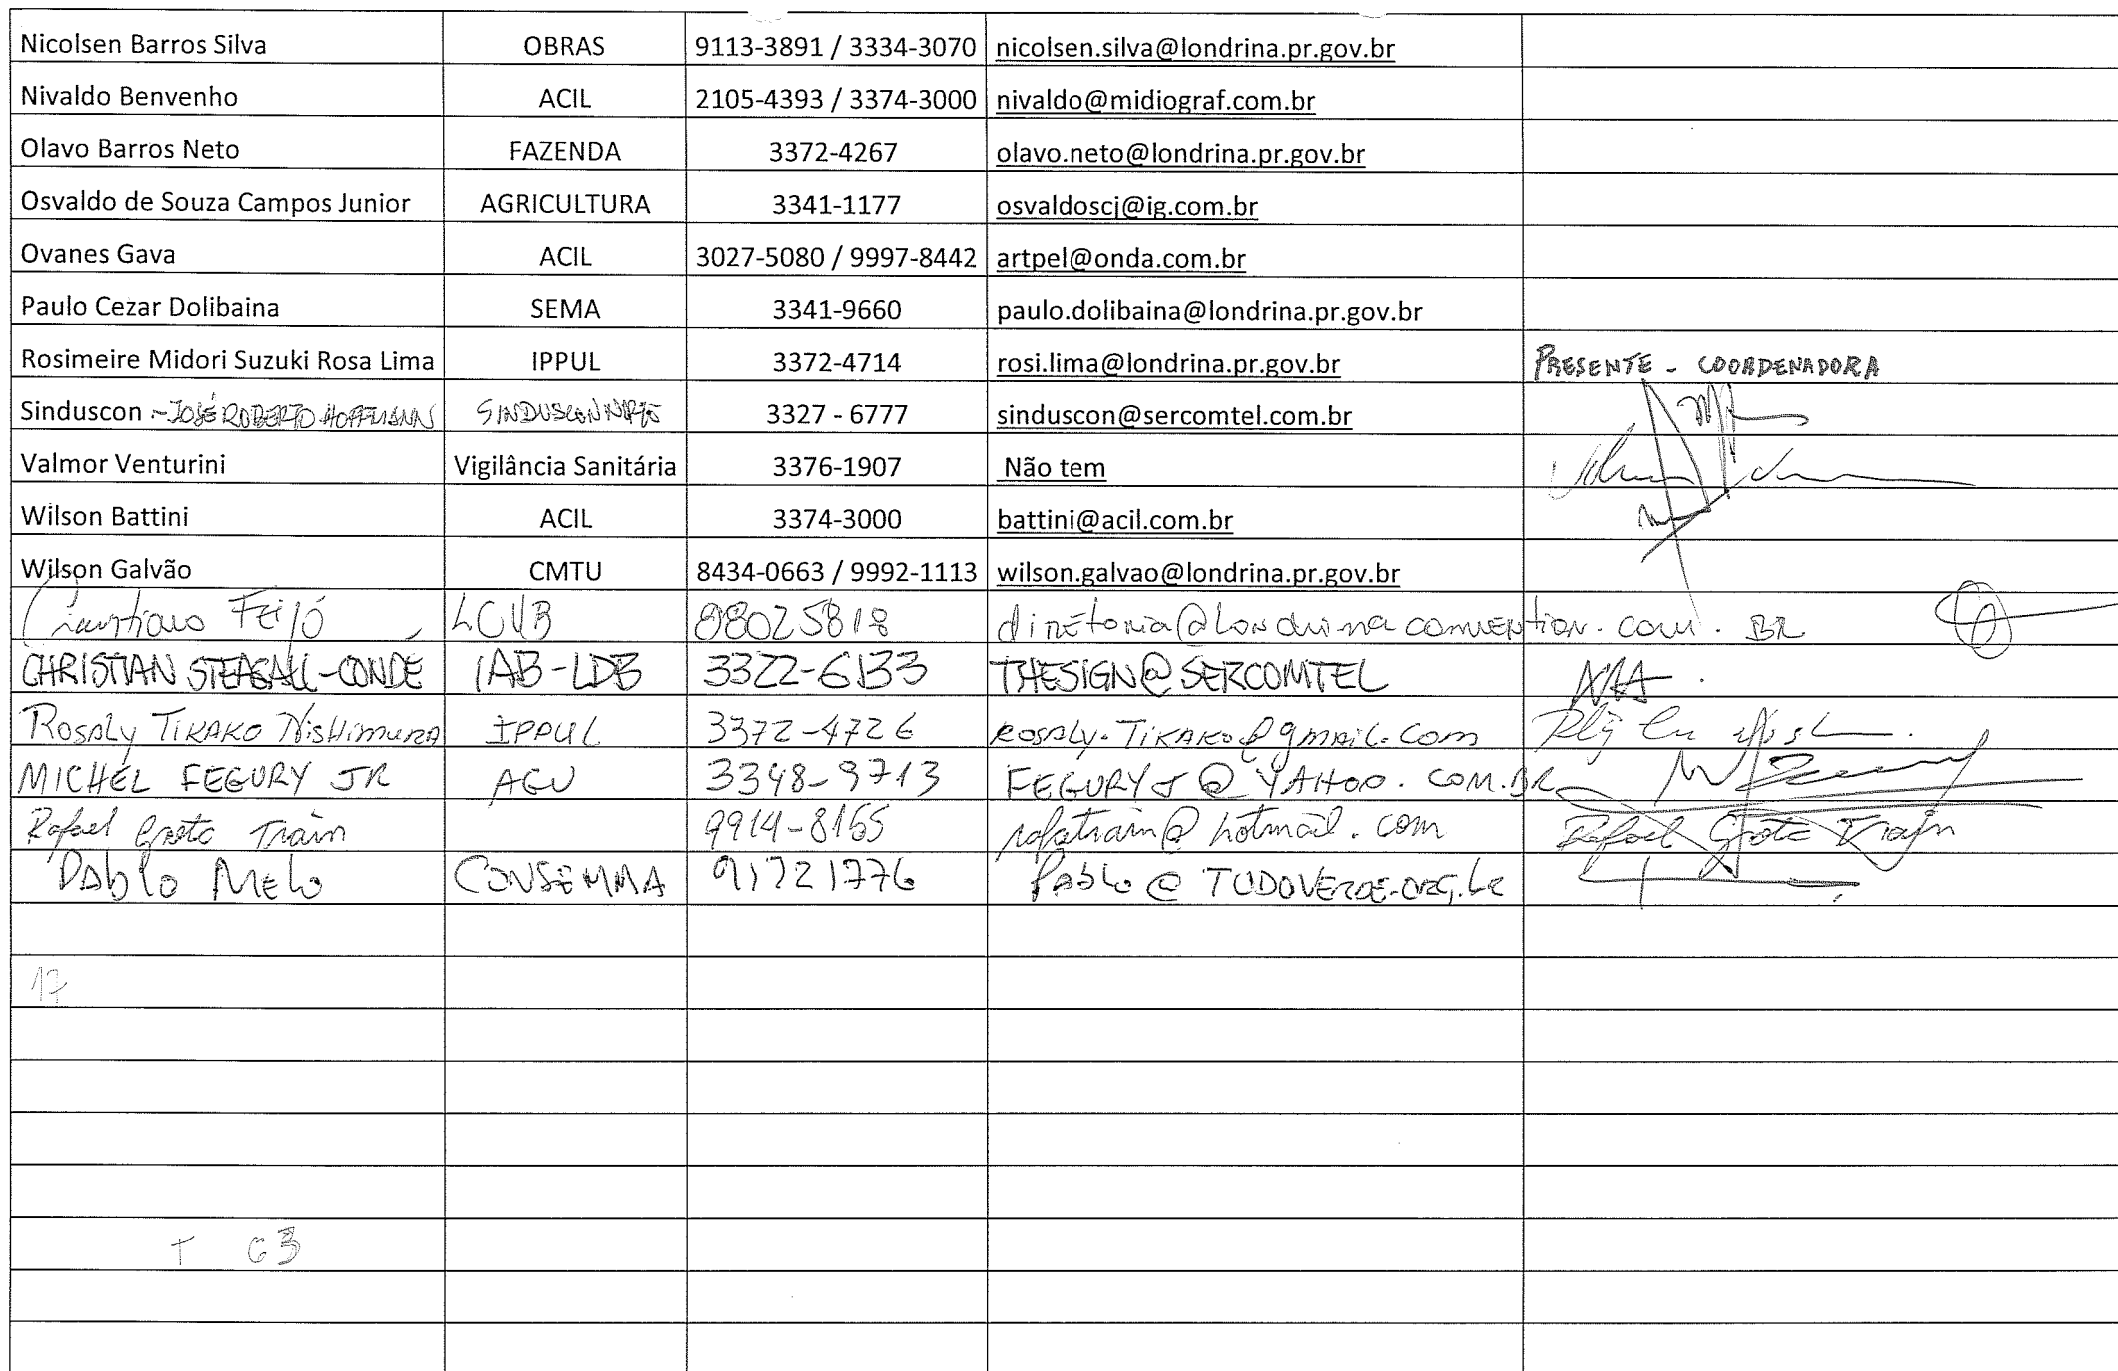 Nicolsen Barros Silva OBRAS 9113-3891 / 3334-3070 nicolsen.silva@londrina.pr.gov.br
Nivaldo Benvenho ACIL 2105-4393 / 3374-3000 nivaldo@midiograf.com.br
Olavo Barros Neto FAZENDA 3372-4267 olavo.neto@londrina.pr.gov.br
Osvaldo de Souza Campos Junior AGRICULTURA 3341-1177 osvaldoscj@ig.com.br
Ovanes Gava ACIL 3027-5080 / 9997-8442 artpel@onda.com.br
Paulo Cezar Dolibaina SEMA 3341-9660 paulo.dolibaina@londrina.pr.gov.br
Rosimeire Midori Suzuki Rosa Lima IPPUL 3372-4714 rosi.lima@londrina.pr.gov.br PRESENTE - COORDENADORA
Sinduscon - JOSÉ ROBERTO HOFFMANN 3327 - 6777 sinduscon@sercomtel.com.br
Valmor Venturini Vigilância Sanitária 3376-1907 Não tem
Wilson Battini ACIL 3374-3000 battini@acil.com.br
Wilson Galvão CMTU 8434-0663 / 9992-1113 wilson.galvao@londrina.pr.gov.br
Feijó LCVB 88025818 diretoria@londrinaconvention.com.BR
CHRISTIAN STEAGALL-CONDÉ IAB-LDB 3322-6133 THESIGN@SERCOMTEL
Rosaly Tikako Nishimura IPPUL 3372-4726 Rosaly.Tikako@gmail.com
MICHEL FEGURY JR AGU 3348-9713 FEGURYJ@YAHOO.COM.BR
Rafael Grota Train 9914-8165 rafatrain@hotmail.com Rafael Grota Train
Pablo Melo CONSEMMA 91721776 Pablo@TUDOVERDE.ORG.br
17
T 63